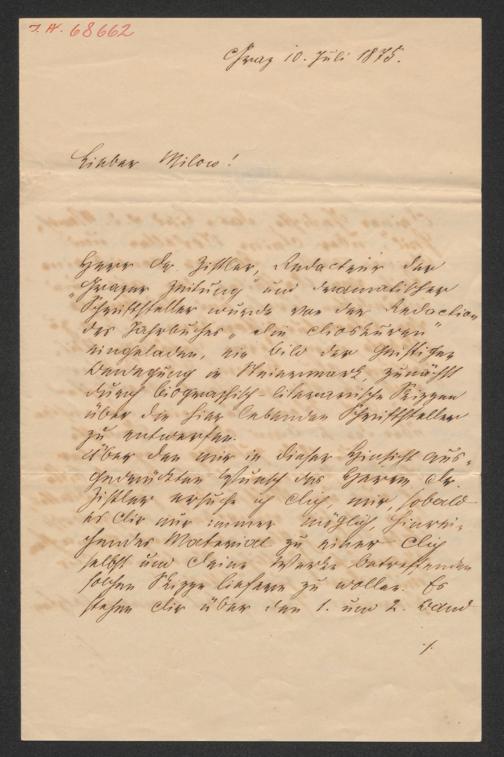 I.N. 68662
Graz 10. Juli 1875.
Lieber Milow!
Herr Dr. Zistler, Redacteur der
"Grazer Zeitung" und dramatischer
Schriftsteller wurde von der Redaction
des Jahrbuches "die Dioskuren"
eingeladen, ein Bild der geistigen
Bewegung in Steiermark, zunächst
durch biografisch-literarische Skizzen
über die hier lebenden Schriftsteller
zu entwerfen.
Über den mir in dieser Hinsicht aus-
gedrückten Wunsch des Herrn Dr.
Zistler ersuche ich Dich, mir, sobald
es Dir nur immer möglich, hinrei-
chendes Material zu einer Dich
selbst und Deine Werke betreffenden
solchen Skizze liefern zu wollen. Es
stehen Dir über den 1. und 2. Band
./.